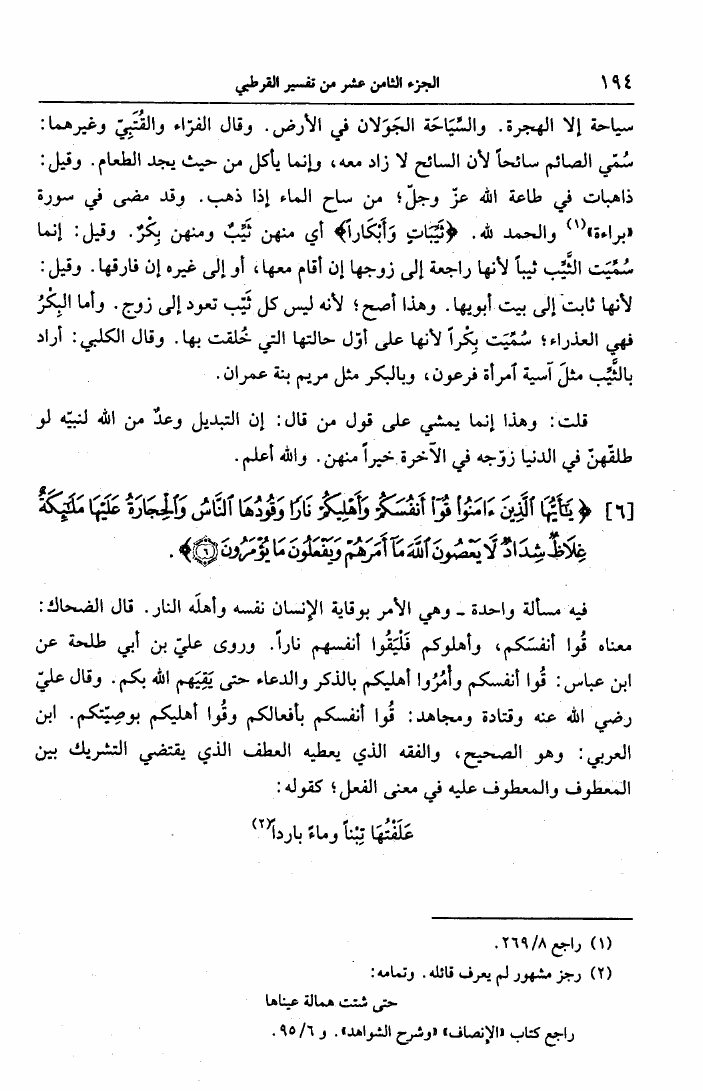 ١٩٤ الجزء الثامن عشر من تفسير القرطبي
سياحة إلا الهجرة. والسِّيَاحَة الجَوَلان في الأرض. وقال الفرّاء والقُتَبِيّ وغيرهما:
سُمّي الصائم سائحاً لأن السائح لا زاد معه، وإنما يأكل من حيث يجد الطعام. وقيل:
ذاهبات في طاعة الله عزّ وجلّ؛ من ساح الماء إذا ذهب. وقد مضى في سورة
«براءة»(١) والحمد لله. ﴿ثَيِّبَاتٍ وَأَبْكَاراً﴾ أي منهن ثَيِّبٌ ومنهن بِكْرٌ. وقيل: إنما
سُمِّيَت الثَّيِّب ثيباً لأنها راجعة إلى زوجها إن أقام معها، أو إلى غيره إن فارقها. وقيل:
لأنها ثابت إلى بيت أبويها. وهذا أصح؛ لأنه ليس كل ثَيّب تعود إلى زوج. وأما البِكْرُ
فهي العذراء؛ سُمِّيَت بِكْراً لأنها على أوّل حالتها التي خُلقت بها. وقال الكلبي: أراد
بالثَّيِّب مثلَ آسية ٱمرأة فرعون، وبالبكر مثل مريم بنة عمران.
قلت: وهذا إنما يمشي على قول من قال: إن التبديل وعدٌ من الله لنبيّه لو
طلقّهنّ في الدنيا زوّجه في الآخرة خيراً منهن. والله أعلم.
[٦] ﴿يَٰٓأَيُّهَا ٱلَّذِينَ ءَامَنُوا۟ قُوٓا۟ أَنفُسَكُمْ وَأَهْلِيكُمْ نَارًا وَقُودُهَا ٱلنَّاسُ وَٱلْحِجَارَةُ عَلَيْهَا مَلَٰٓئِكَةٌ
غِلَاظٌ شِدَادٌ لَّا يَعْصُونَ ٱللَّهَ مَآ أَمَرَهُمْ وَيَفْعَلُونَ مَا يُؤْمَرُونَ ٦﴾.
فيه مسألة واحدة ـ وهي الأمر بوقاية الإنسان نفسه وأهلَه النار. قال الضحاك:
معناه قُوا أنفسَكم، وأهلوكم فَلْيَقُوا أنفسهم ناراً. وروى عليّ بن أبي طلحة عن
ابن عباس: قُوا أنفسكم وأْمُرُوا أهليكم بالذكر والدعاء حتى يَقِيَهم الله بكم. وقال عليّ
رضي الله عنه وقتادة ومجاهد: قُوا أنفسكم بأفعالكم وقُوا أهليكم بوصِيّتكم. ابن
العربي: وهو الصحيح، والفقه الذي يعطيه العطف الذي يقتضي التشريك بين
المعطوف والمعطوف عليه في معنى الفعل؛ كقوله:
عَلَفْتُهَا تِبْناً وماءً بارداً(٢)
(١) راجع ٢٦٩/٨.
(٢) رجز مشهور لم يعرف قائله. وتمامه:
حتى شتت همالة عيناها
راجع كتاب «الإنصاف» «وشرح الشواهد». و ٩٥/٦.